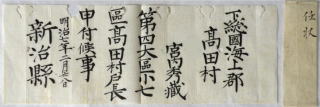 仕状
下総國海上郡
高田村
宮内秀蔵
第四大區小七
區高田村戸長
申付候事
明治七年一月廿八日
新治縣